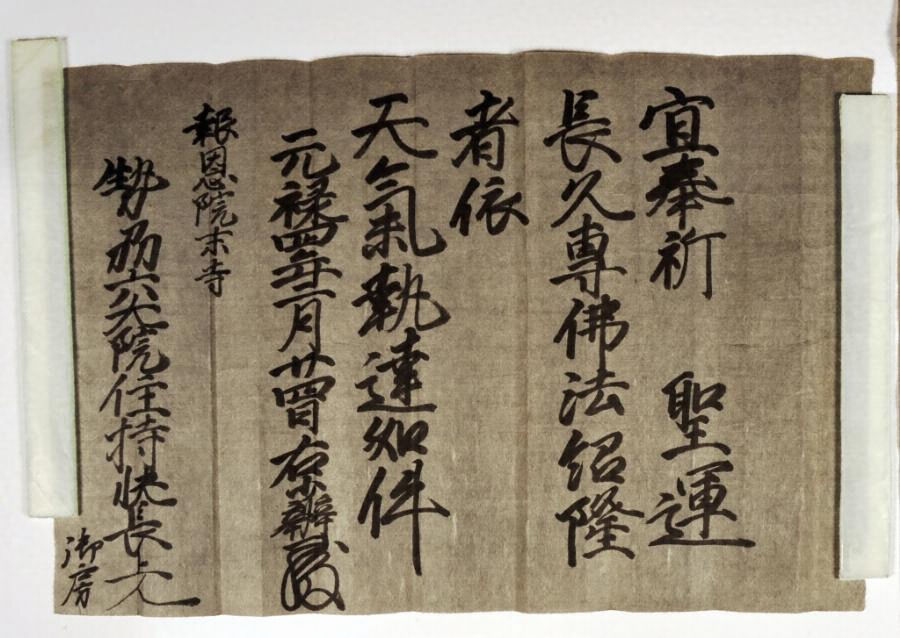 宜奉祈 聖運
長久專佛法紹隆
者依
天氣執達如件
元禄四年二月廿四日右中辨
報恩院末寺
勢州六大院住持快長上人
御房